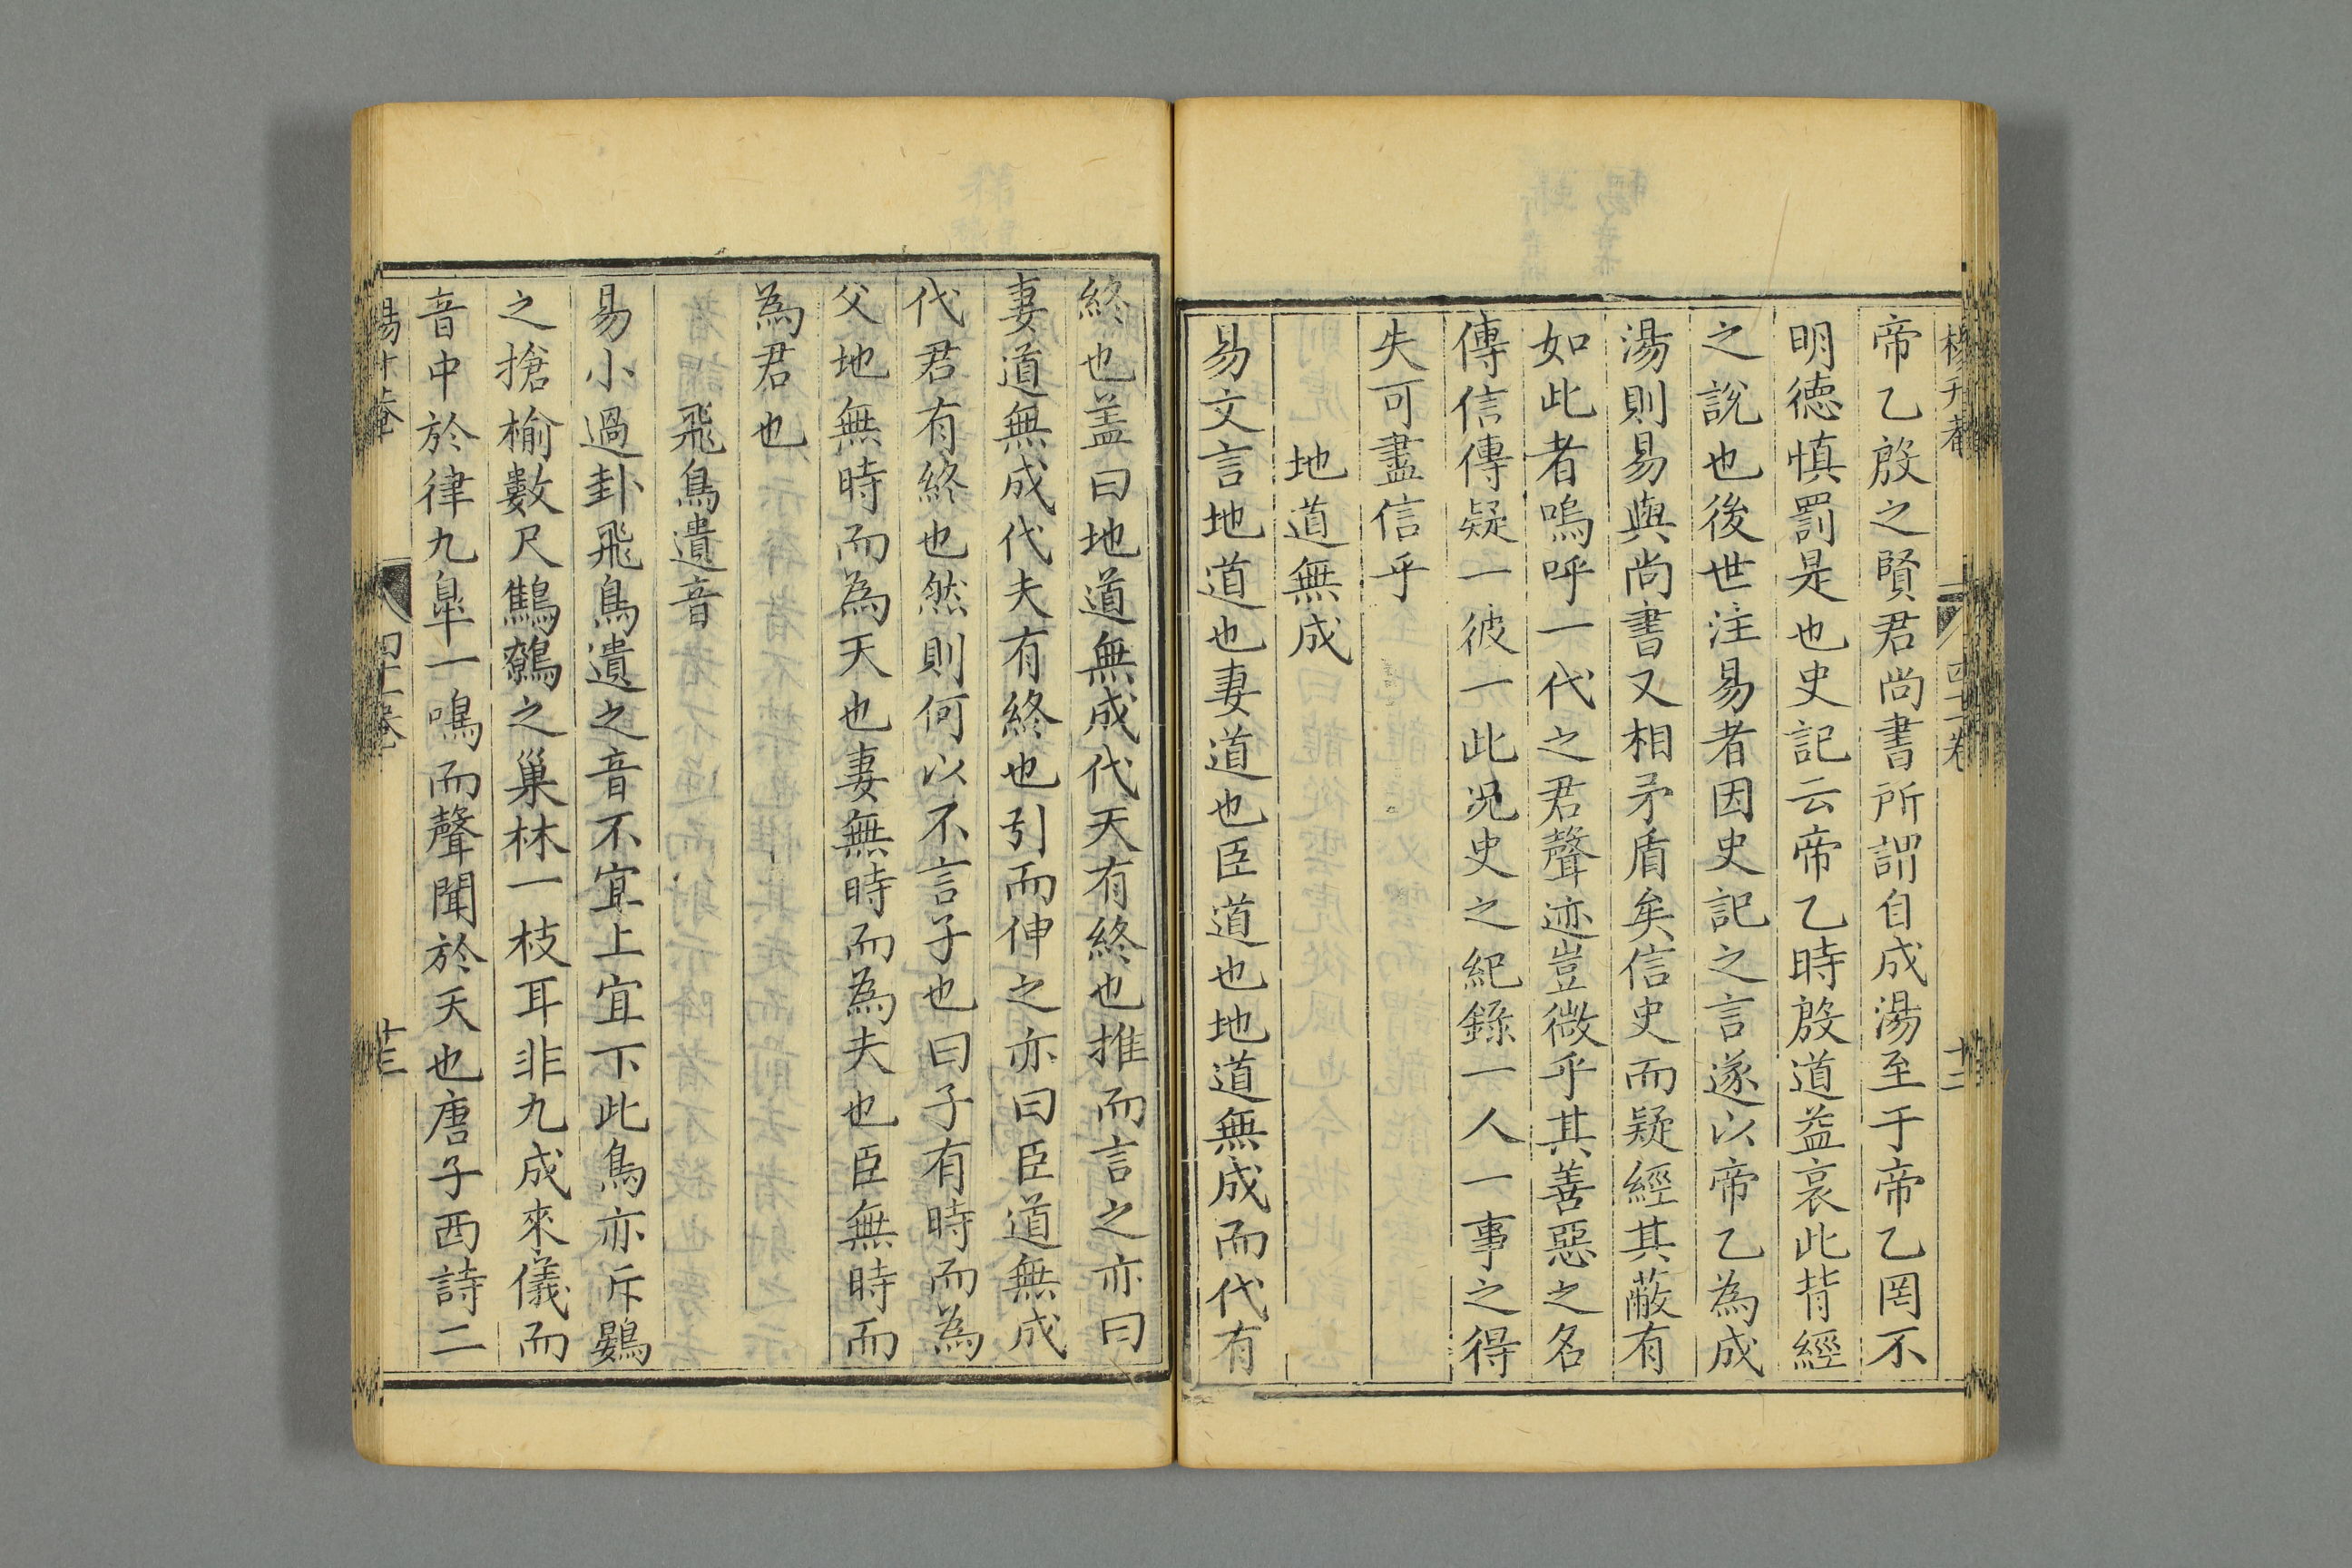 帝乙殷之賢君尚書所謂自成湯至于帝乙罔不
明德慎罰是也史記云帝乙時殷道益衰此背經
之說也後世注易者因史記之言遂以帝乙為成
湯則易與尚書又相矛盾矣信史而疑經其蔽有
如此者嗚呼一代之君聲迹豈微乎其善惡之名
傳信傳疑一彼一此况史之紀錄一人一事之得
失可盡信乎
地道無成
易文言地道也妻道也臣道也地道無成而代有
終也盖曰地道無成代天有終也推而言之亦曰
妻道無成代夫有終也引而伸之亦曰臣道無成
代君有終也然則何以不言子也曰子有時而為
父地無時而為天也妻無時而為夫也臣無時而
為君也
飛鳥遺音
易小過卦飛鳥遺之音不宜上宜下此鳥亦斥鷃
之搶榆數尺鷦鷯之巢林一枝耳非九成來儀而
音中於律九臯一鳴而聲聞於天也唐子西詩二